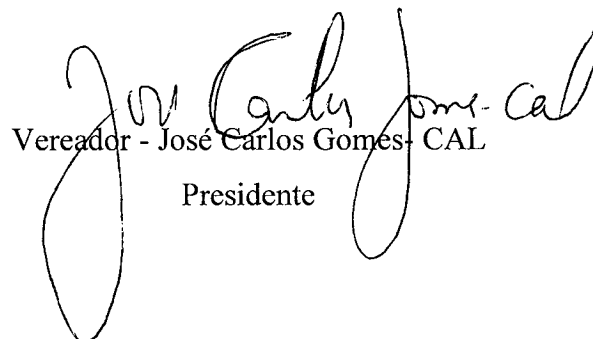 José Carlos Gomes-Cal
Vereador - José Carlos Gomes- CAL
Presidente